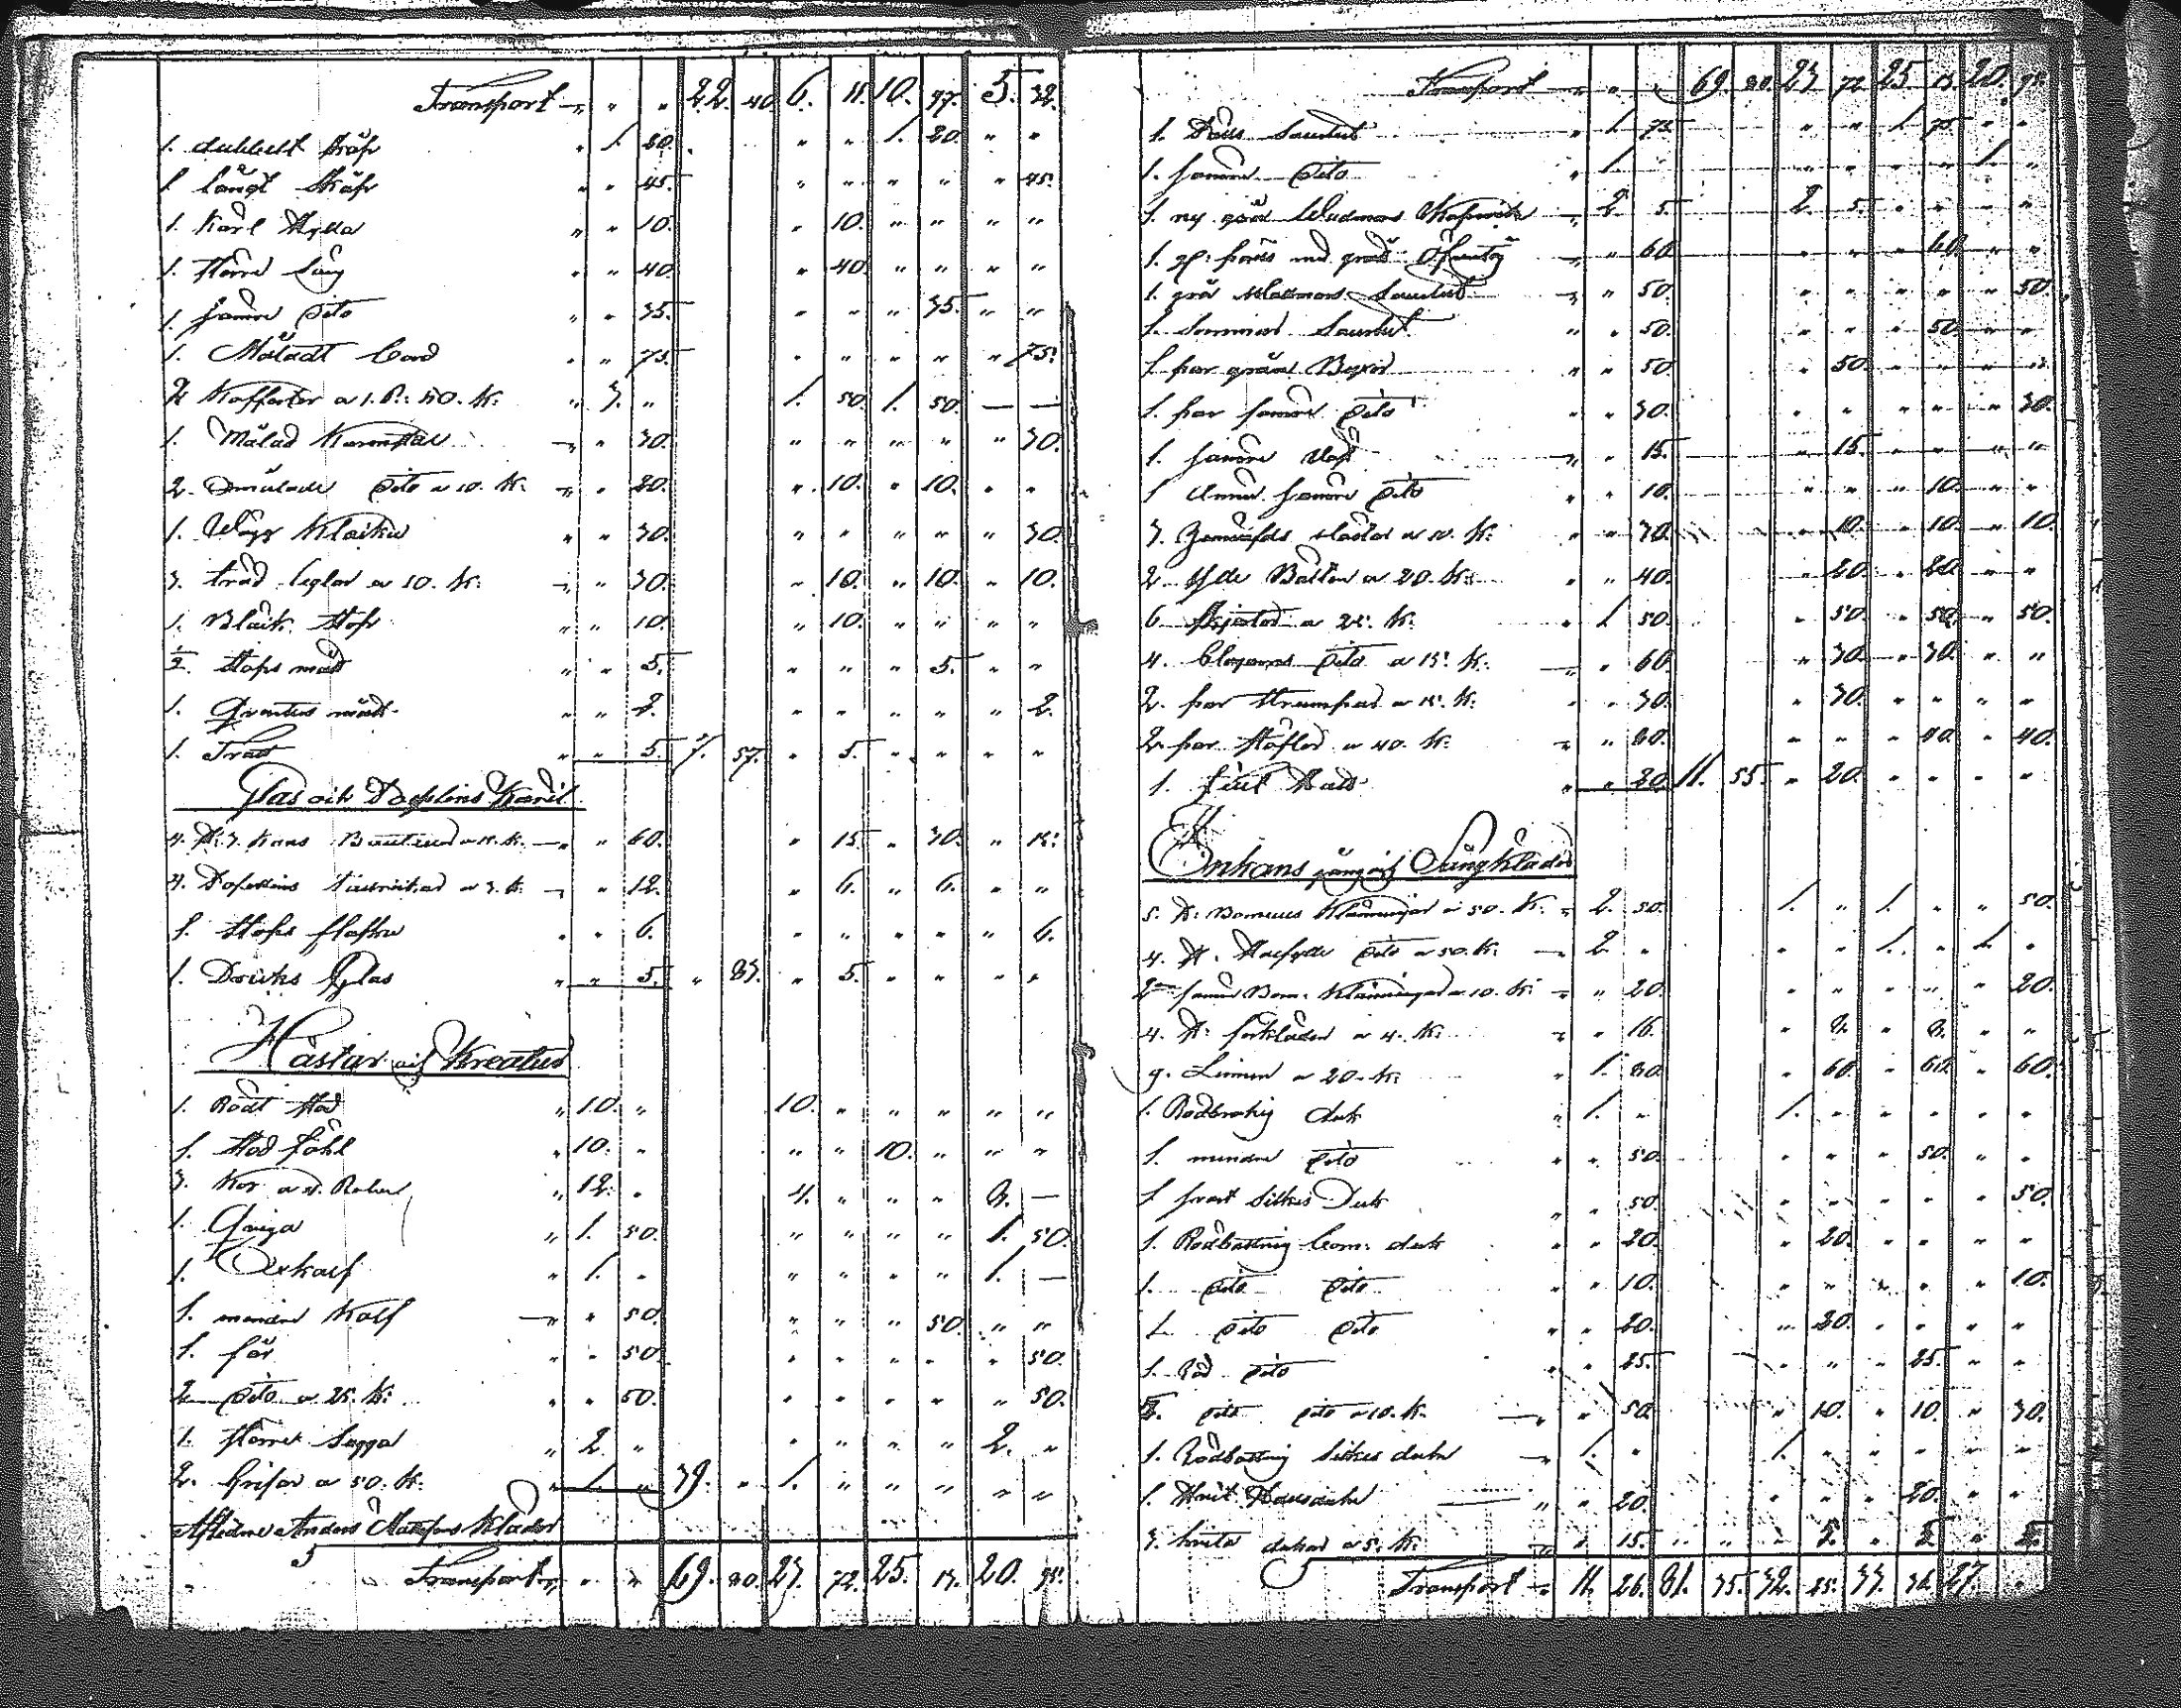 Transport „ „ „ 22. 40. 6. 11. 10. 97. 5. 32.
1. dubbelt Skåp „ 1. 20. „ „ 1. 20. „ „
1 långt Skåp „ „ 45. „ „ „ „ „ 45.
1. Karl „ „ 10. „ 10. „ „ „ „
1. Större Säng „ „ 40. „ 40. „ „ „ „
1. sämre Dito „ „ 35. „ „ „ 35. „ „
1. Måladt Bord „ „ 75. „ „ „ „ „ 75.
2 Koffertar a 1. R: 50. K: „ 3. „ 1. 50. 1. 50. — —
1. Målad „ „ 30. „ „ „ „ „ 30.
2. Omålade Dito a 10. K: „ „ 20. „ 10. „ 10. „ „
1. Vägg Klocka „ „ 30. „ „ „ „ „ 30.
3. a 10. K: „ „ 30. „ 10. „ 10. „ 10.
1. Bläck Stop „ „ 10. „ 10. „ „ „ „
1/2 Stops mått „ „ 5. „ „ „ 5. „ „
1. Qvarters mått „ „ 2. „ „ „ „ „ 2.
1. Tratt „ „ 5. 7. 57. „ 5. „ „ „ „
Glas och Porslins Käril
4. St: 3. Kans Bouteiller a 15. K. „ „ 60. „ 15. „ 30. „ 15.
4. Porslins a 3. K. „ „ 12. „ 6. „ 6. „ „
1. Stops flaska „ „ 6. „ „ „ „ „ 6.
1. Dricks Glas „ „ 5. „ 83. „ 5. „ „ „ „
Hästar och Kreatur
1. Rödt Sto „ 10. „ 10. „ „ „ „ „
1. Sto föhl „ 10. „ „ „ 10. „ „ „
3. Kor a 4. Rubel „ 12. „ 4. „ „ „ 8. —
1. Qviga „ 1. 50. „ „ „ „ 1. 50.
1. Oxkalf „ 1. „ „ „ „ „ 1. —
1. mindre Kalf „ „ 50. „ „ „ 50. „ „
1. får „ „ 50. „ „ „ „ „ 50.
2 Dito a 25. K: „ „ 50. „ „ „ „ „ 50.
1. Större Sugga „ 2. „ „ „ „ „ 2. „
2. Grisar a 50. K: „ 1. „ 39. „ 1. „ „ „ „ „
Aflidne Anders Matssons Kläder
Transport „ „ „ 69. 80. 23. 72. 25. 13. 20. 95.
Transport „ „ „ 69. 80. 23. 72. 25. 13. 20. 95.
1. Surtut „ 1. 75. „ „ 1. 75. „ „
1. sämre Dito „ 1. „ „ „ „ 1. „
1. ny grå Wadmans „ 2. 5. 2. 5. „ „ „ „
1. med grått Öfvertyg „ „ 60. „ „ „ 60. „ „
1. grå Wadmans Surtut „ „ 50. „ „ „ „ „ 50.
1. Surtut „ „ 50. „ „ „ 50. „ „
1 par gråa Byxor „ „ 50. „ 50. „ „ „ „
1. par sämre Dito „ „ 30. „ „ „ „ „ 30.
1. sämre Väst „ „ 15. „ 15. „ „ „ „
1 Ännu sämre Dito „ „ 10. „ „ „ 10. „ „
3. a 10. K: „ „ 30. „ 10. „ 10. „ 10.
2. Bälten a 20. K: „ „ 40. „ 20. „ 20. „ „
6 Skjortor a 25. K: „ 1 50. „ 50. „ 50. „ 50.
4. Dito a 15. K: „ „ 60. „ 30. „ 30. „ „
2. par Strumpor a 15. K. „ „ 30. „ 30. „ „ „ „
2. par Stöflor a 40. K. „ „ 80. „ „ „ 40. „ 40.
1. „ „ 20. 11. 55. „ 20. „ „ „ „
Enkans gång och Sängkläder
5. St: Bomulls Klänningar a 50. K. „ 2. 50. 1. „ 1. „ „ 50.
4. St: Halfylle Dito a 50. K. „ 2 „ „ „ 1. „ 1 „
2 sämre Bom. Klänningar a 10. K: „ „ 20. „ „ „ „ „ 20.
4. St: förkläden a 4. K: „ „ 16. „ 8. „ 8. „ „
9. Linnen a 20. K: „ 1. 80. „ 60. „ 60. „ 60.
1. Rödbrokig duk „ 1. „ 1. „ „ „ „ „
1. mindre Dito „ „ 50. „ „ „ 50. „ „
1 svart Silkes Duk „ „ 50. „ „ „ „ „ 50.
1. Rödbottnig Bom: duk „ „ 20. „ 20. „ „ „ „
1. Dito Dito „ „ 10. „ „ „ „ „ 10.
1. Dito Dito „ „ 20. „ 20. „ „ „ „
1. Röd Dito „ „ 25. „ „ „ 25. „ „
5. Dito Dito a 10. K. „ „ 50. „ 10. „ 10. „ 30.
1. Rödbottnig Silkes duk „ 1. „ 1. „ „ „ „ „
1. Hvit Halsduk „ „ 20. „ „ „ 20. „ „
3. hvita dukar a 5. K. „ „ 15. „ „ „ 5. „ 5. „ 5.
Transport „ 11. 26. 81. 35. 32. 25. 33. 36. 27. „